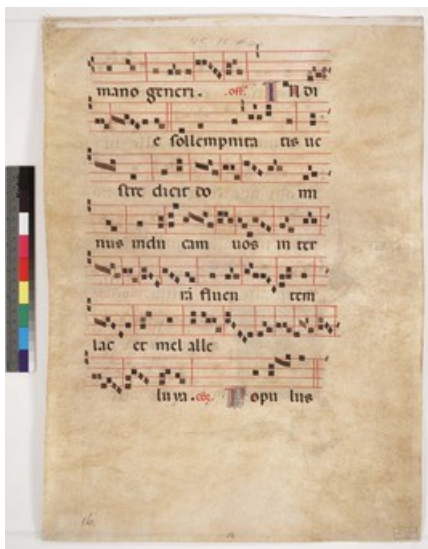 mano generi. off. In di
e sollempnita tis ue
stre dicit do mi
nus indu cam uos in ter
rā fluen tem
lac et mel alle
luya. co͂. Popu lus
16.